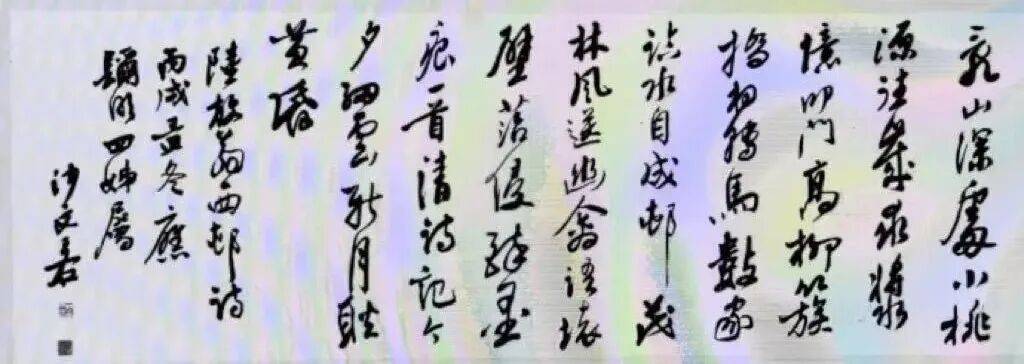 亂山深處小桃
源往歲求漿
憶叩門高柳簇
橋初轉馬數家
臨水自成邨茂
林風送幽禽語壞
壁苔侵醉墨
痕一首清詩記今
夕細雲新月耿
黃昏
陸放翁西邨詩
丙戌孟冬應
四姊屬
沙文若